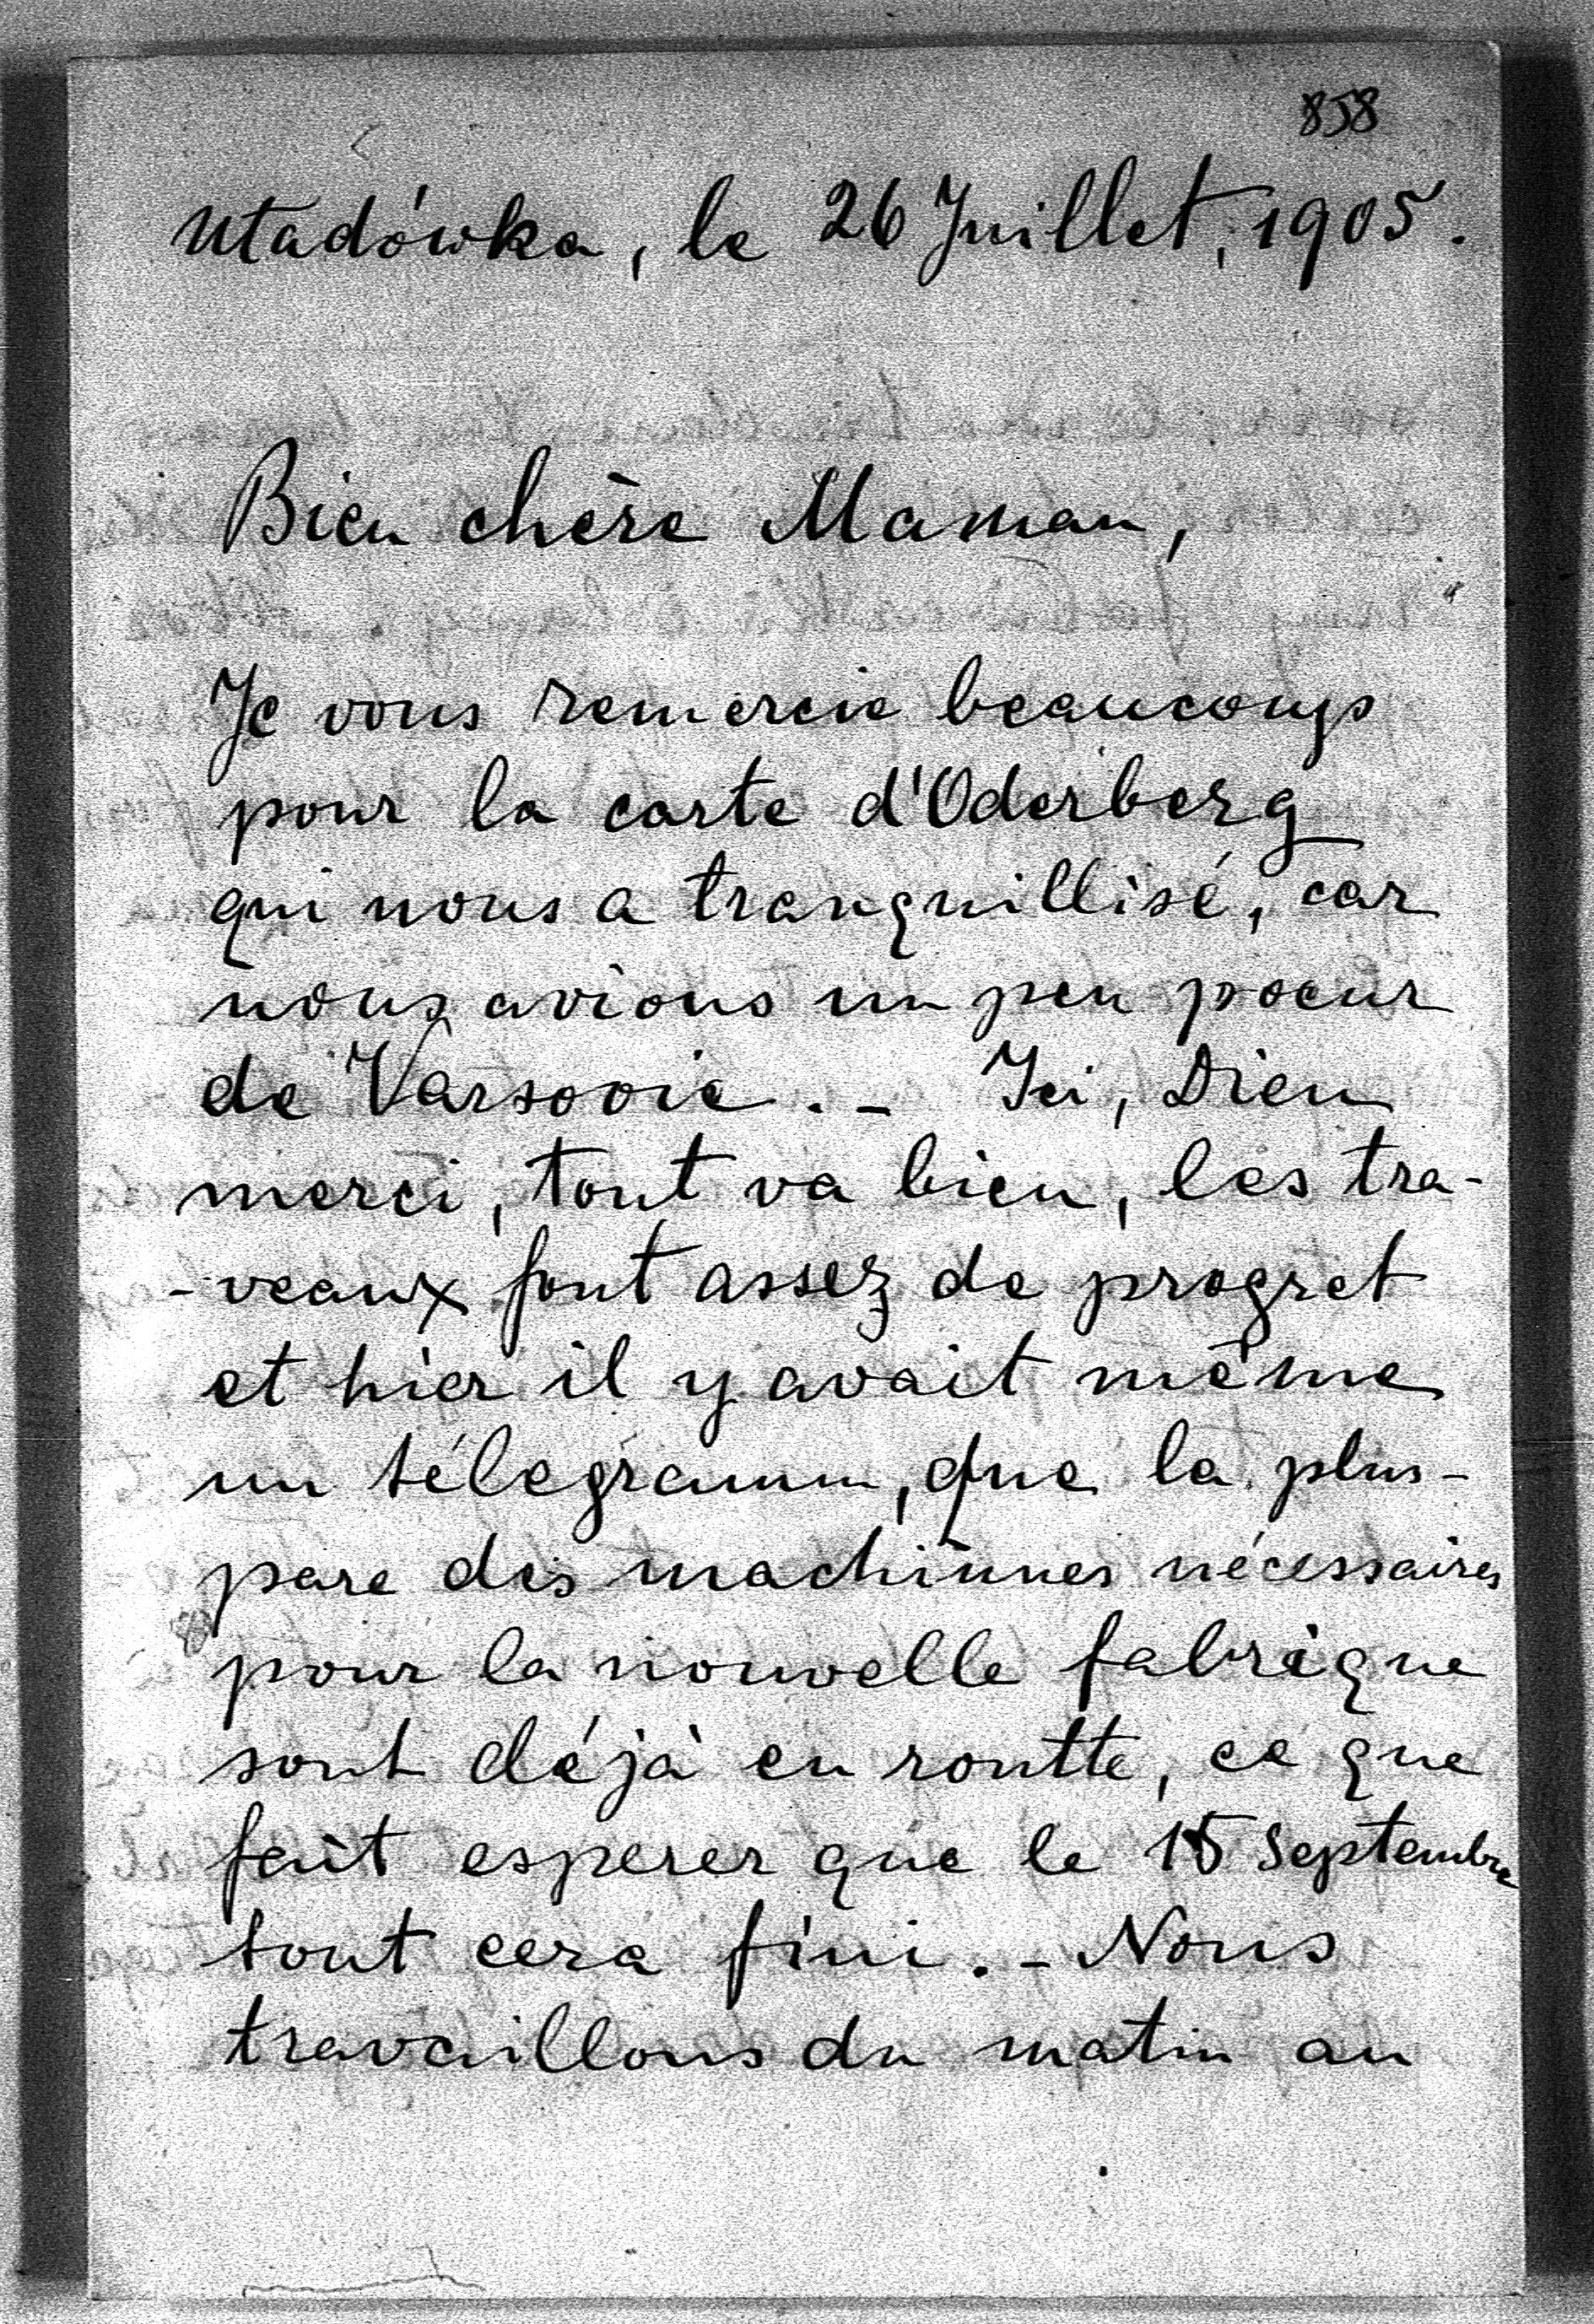 858
Utadówka, le 26 Juillet, 1905.
Bien chère Maman,
Je vous remercie beaucoups
pour la carte d'Oderberg
qui nous a tranquillisé, car
nous avions un peu poeur
de Varsovie. - Ici, Dieu
merci, tout va bien, les tra-
-veaux font assez de progret
et hier il y avait même
un télegramm, que la plus-
pare des machinnes nécessaires
pour la nouvelle fabrique
sont déjà en routte, ce que
fait esperer que le 15 Septembre
tout cera fini. - Nous
travaillons du matin au